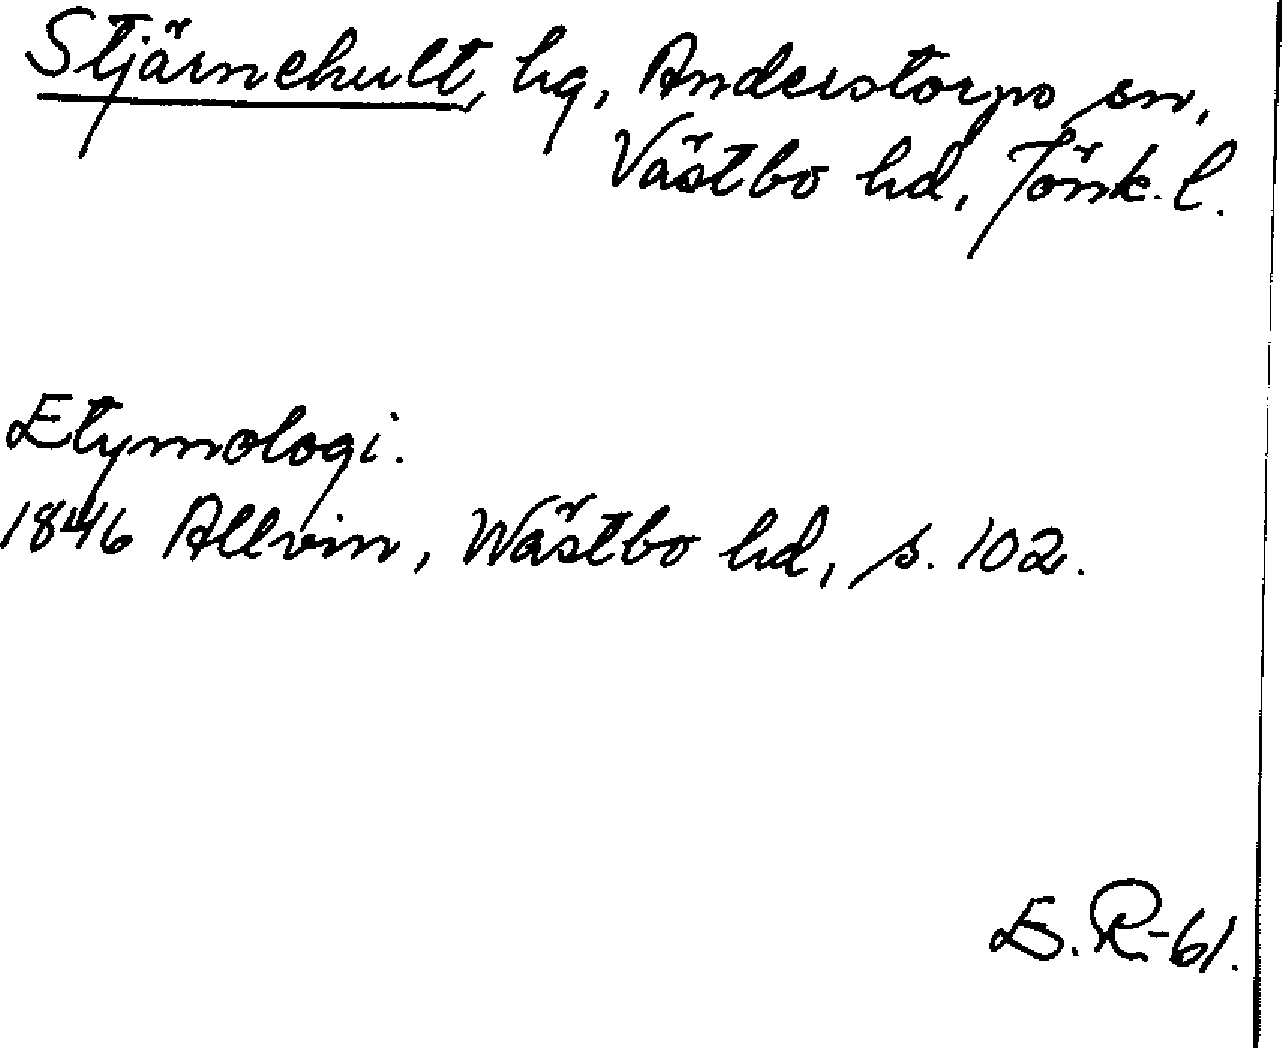 Stjärnehult, hg, Anderstorps sn,
Västbo hd, Jönk. l.
Etymologi.
1846 Allvin, Wästbo hd, s. 102.
B. R-61.